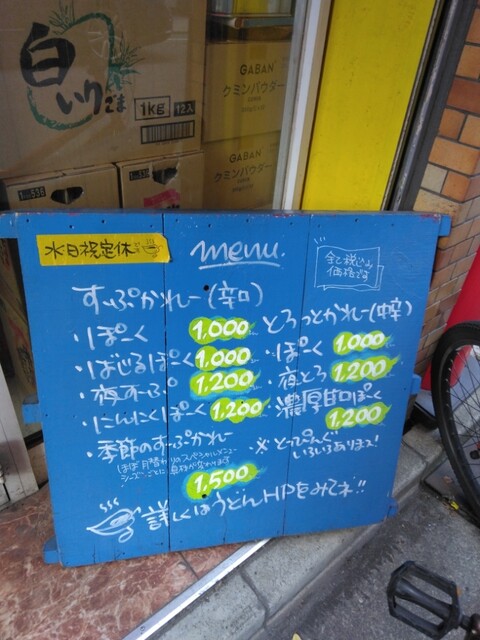 白
いりごま
1kg 12入
GABAN
クミンパウダー
GABAN
クミンパウダー
水日祝定休
menu.
全て税込み
価格です
すぅぷかれー(辛口)
・ぽーく 1,000
・ばじるぽーく 1,000
・夜すーぷ 1,200
・にんにくぽーく 1,200
・季節のすーぷかれー
ほぼ月替わりのスペシャルメニュー
1,500
とろっとかれー(中辛)
・ぽーく 1,000
・夜とろ 1,200
・濃厚甘口ぽーく
1,200
※とっぴんぐ
いろいろあります!
詳しくはうどんHPをみてネ!!